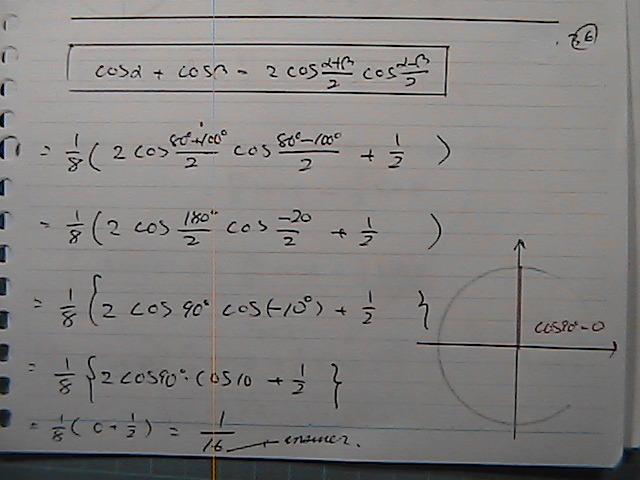 26
cosα + cosβ = 2 cos (α+β)/2 cos (α-β)/2
= 1/8 ( 2 cos (80°+100°)/2 cos (80°-100°)/2 + 1/2 )
= 1/8 ( 2 cos 180°/2 cos -20/2 + 1/2 )
= 1/8 { 2 cos 90° cos(-10°) + 1/2 }
cos90° = 0
= 1/8 { 2 cos90° · cos10 + 1/2 }
= 1/8 ( 0 + 1/2 ) = 1/16 answer.